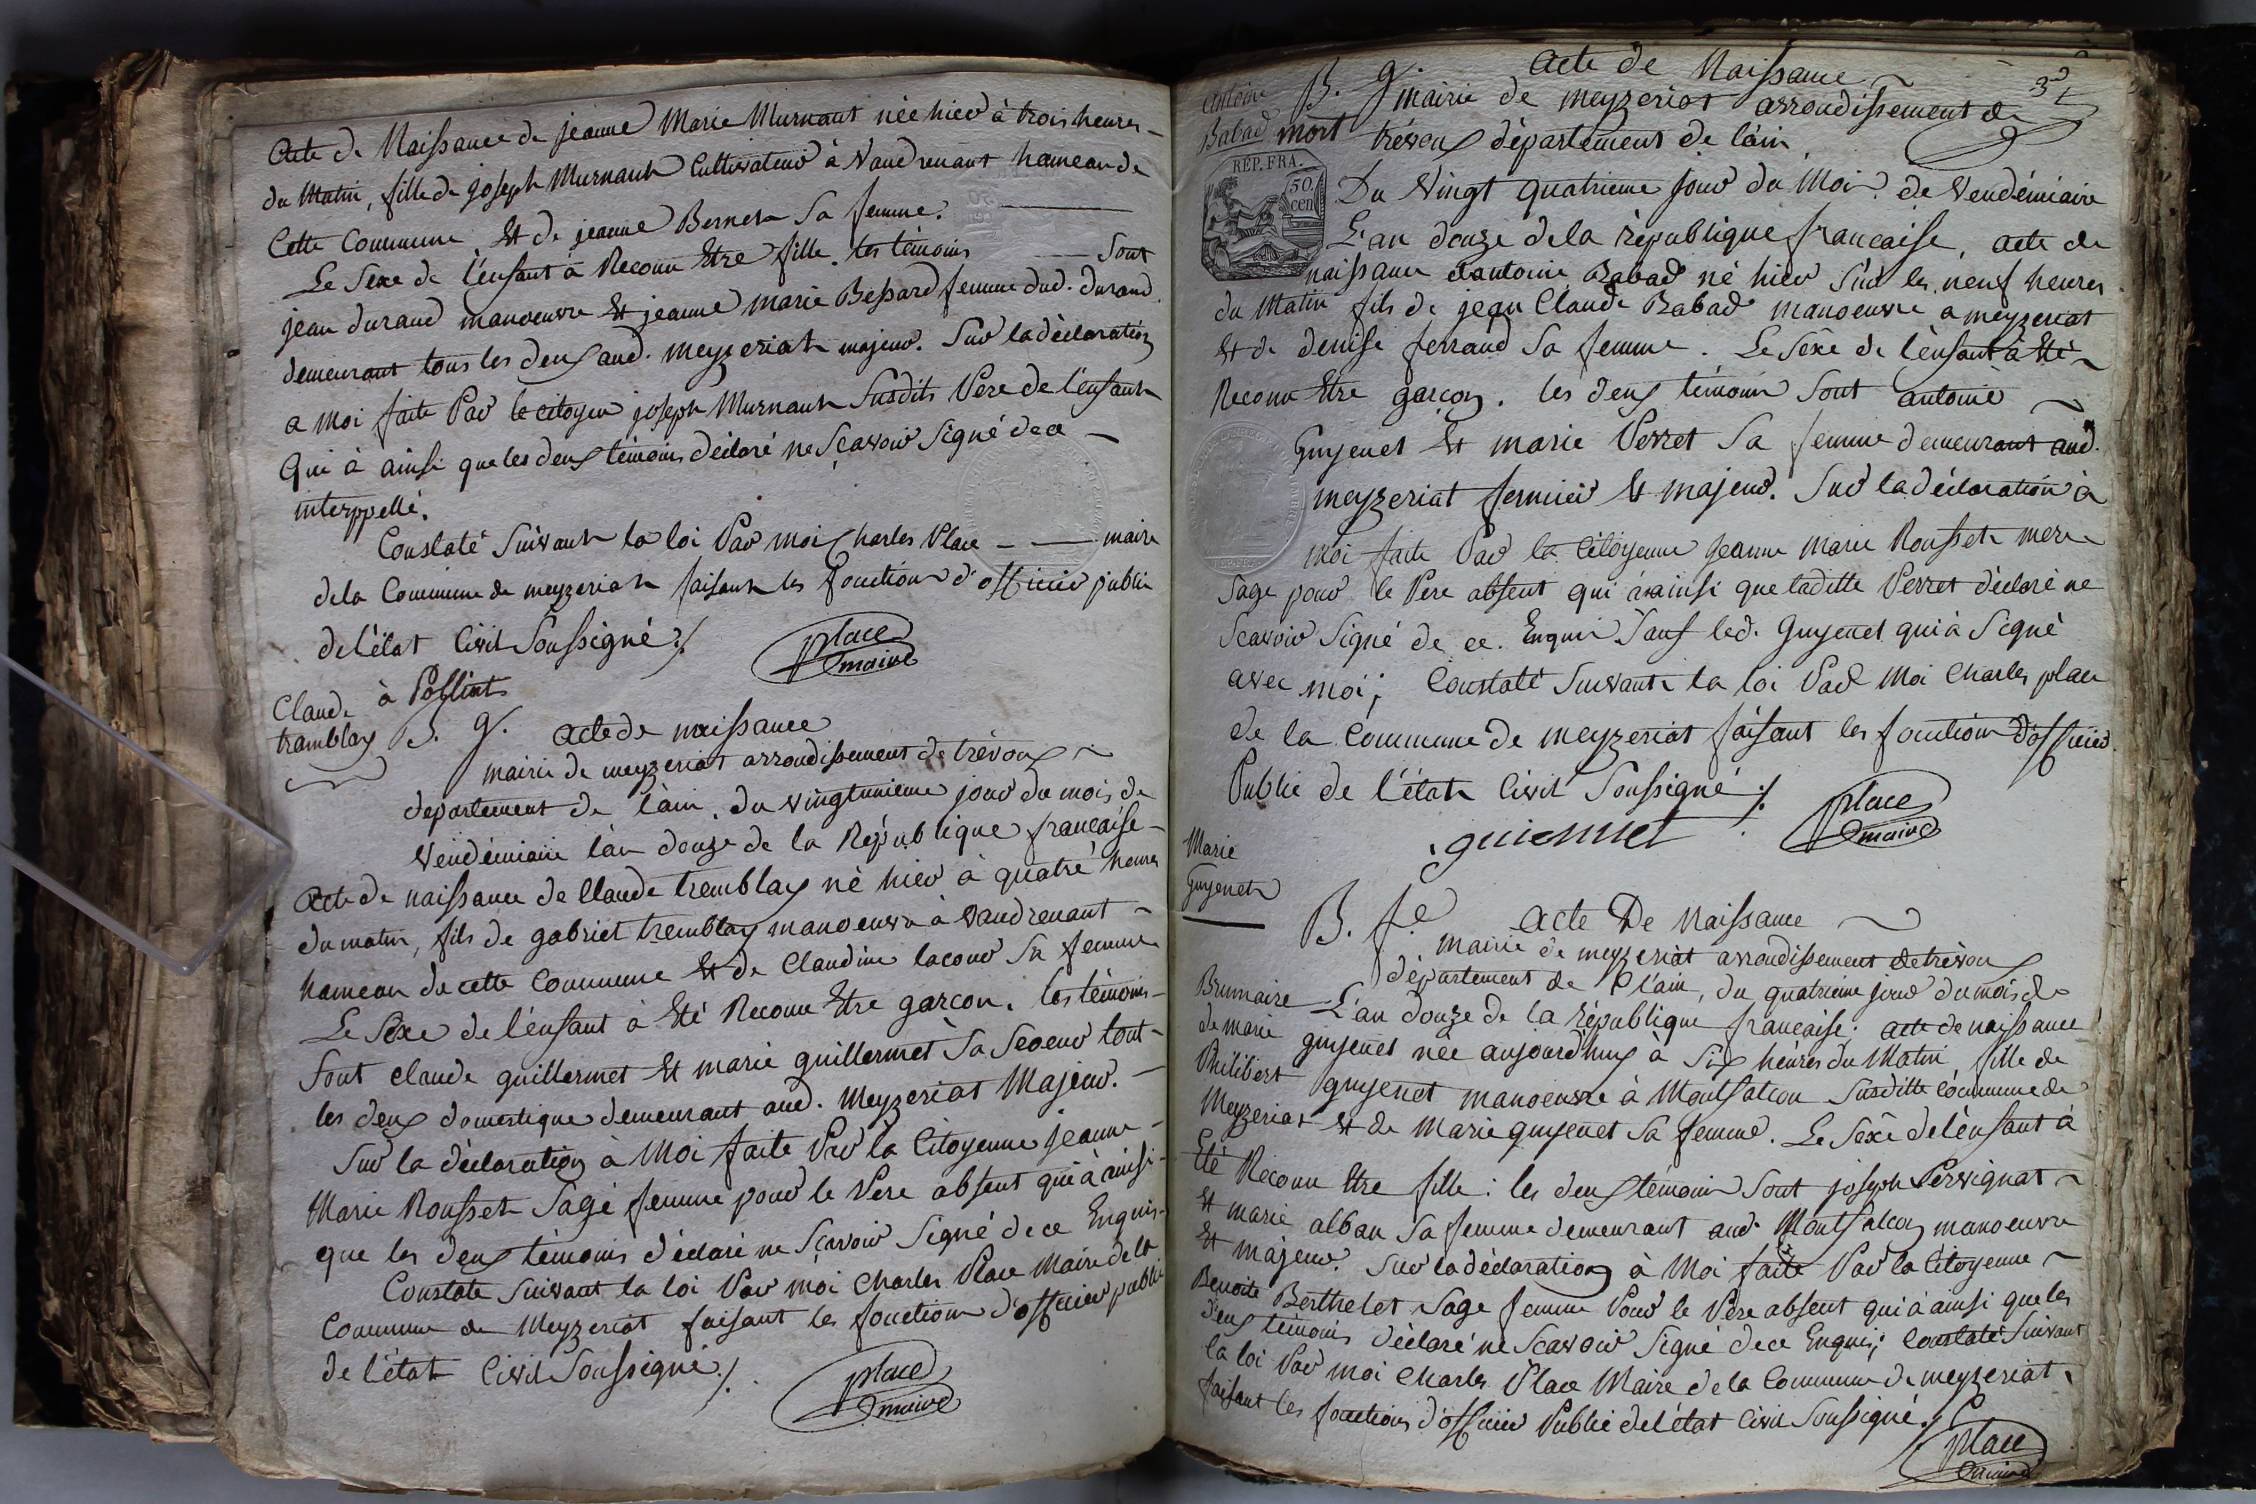 Acte de Naissance de jeanne Marie Murnant née hier à trois heures
du Matin, fille de joseph Murnant Cultivateur à Vaudrenant hameau de
Cette Commune, Et de jeanne Bernet Sa femme.
Le Sexe de l'enfant à Reconu Etre fille. les témoins Sont
jean durand manoeuvre Et jeanne marie Bessard femme dud. durand
demeurant tous les deux aud. meyzeriat majeur. Sur la déclaration
a moi faite Par le citoyen joseph Murnant Susdits Pere de l'enfant
Qui à ainsi que les deux témoins déclaré ne Sçavoir Signé de ce
interppellé.
Constaté Suivant la loi Par moi Charles Place maire
de la Commune de meyzeriat faisant les fonction d'officier public
de l'état Civil Soussigné ./.
place
maire
Claude à Pollint
tramblay
B. g. acte de naissance
mairie de meyzeriat arrondissement de trévoux
departement de l'ain, du vingtunieme jour du mois de
vendémiaire l'an douze de la République française
Acte de naissance de Claude tremblay né hier à quatre heures
du matin, fils de gabriel tremblay manoeuvre à vaudrenant
hameau de cette Commune Et de Claudine lacour Sa femme
Le Sexe de l'enfant à Eté Reconu Etre garcon. les témoins
Sont claude guillermet Et marie guillermet Sa Seoeur tout
les deux domestique demeurant aud. Meyzeriat Majeur.
Sur la déclaration à Moi faite Par la Citoyenne jeanne
Marie Rousset Sage femme pour le Pere absent qui à ainsi
que les deux témoins déclaré ne Sçavoir Signé de ce Enquis
Constaté Suivant la loi Par moi Charles Place Maire de la
Commune de Meyzeriat faisant les fonction d'officier public
de l'état Civil Soussigné ./.
place
maire
Antoine
Babad mort
B. g. Acte de Naissance
mairie de meyzeriat arrondissement de
trévoux département de l'ain
REP. FRA.
50.
cen
Du Vingt quatrieme jour du Moi de Vendémiaire
L'an douze de la république francaise, acte de
naissance d'antoine Babad né hier Sur les neuf heures
du Matin fils de jean Claude Babad manoeuvre a meyzeriat
Et de denise ferrand Sa femme. Le Séxe de l'énfant à Eté
Reconu Etre garçon. les deux témoin Sont antoine
Guyenet Et marie Perret Sa femme demeurant aud.
meyzeriat fermier Et majeur. Sur la déclaration à
moi faite Par la Citoyenne jeanne Marie Rousset mere
Sage pour le Pere absent qui à ainsi que laditte Perret déclaré ne
Scavoir Signé de ce. Enquis Sauf led. Guyenet qui à Signé
avec moi; Constaté Suivant la loi Par Moi Charles place
de la Commune de meyzeriat faisant les fonction d'officier
Public de l'état Civil Soussigné ./.
guiennet
place
maire
Marie
Guyenet
B. fe. acte De Naissance
mairie de meyzeriat arrondissement de trévoux
département de l'ain, du quatrieme jour du mois de
Brumaire L'an douze de la république française; acte de naissance
de marie guyenet née aujourd'huy à Six heures du Matin fille de
Philibert guyenet manoeuvre à Montfalcon Susditte commune de
Meyzeriat Et de Marie guyenet Sa femme. Le Séxe de l'énfant à
Eté Reconu Etre fille: les deux témoin Sont joseph Pervignat
Et marie alban Sa femme demeurant aud. Montfalcon manoeuvre
Et majeur. Sur la déclaration à Moi faite Par la Citoyenne
Benoite Berthelet Sage femme Pour le Pere absent qui à ainsi que les
deux témoins déclaré ne Scavoir Signé de ce Enquis; Constaté Suivant
la loi Par moi Charles Place Maire de la Commune de meyzeriat
faisant les fonctions d'officier Public de l'état Civil Soussigné ./.
place
maire